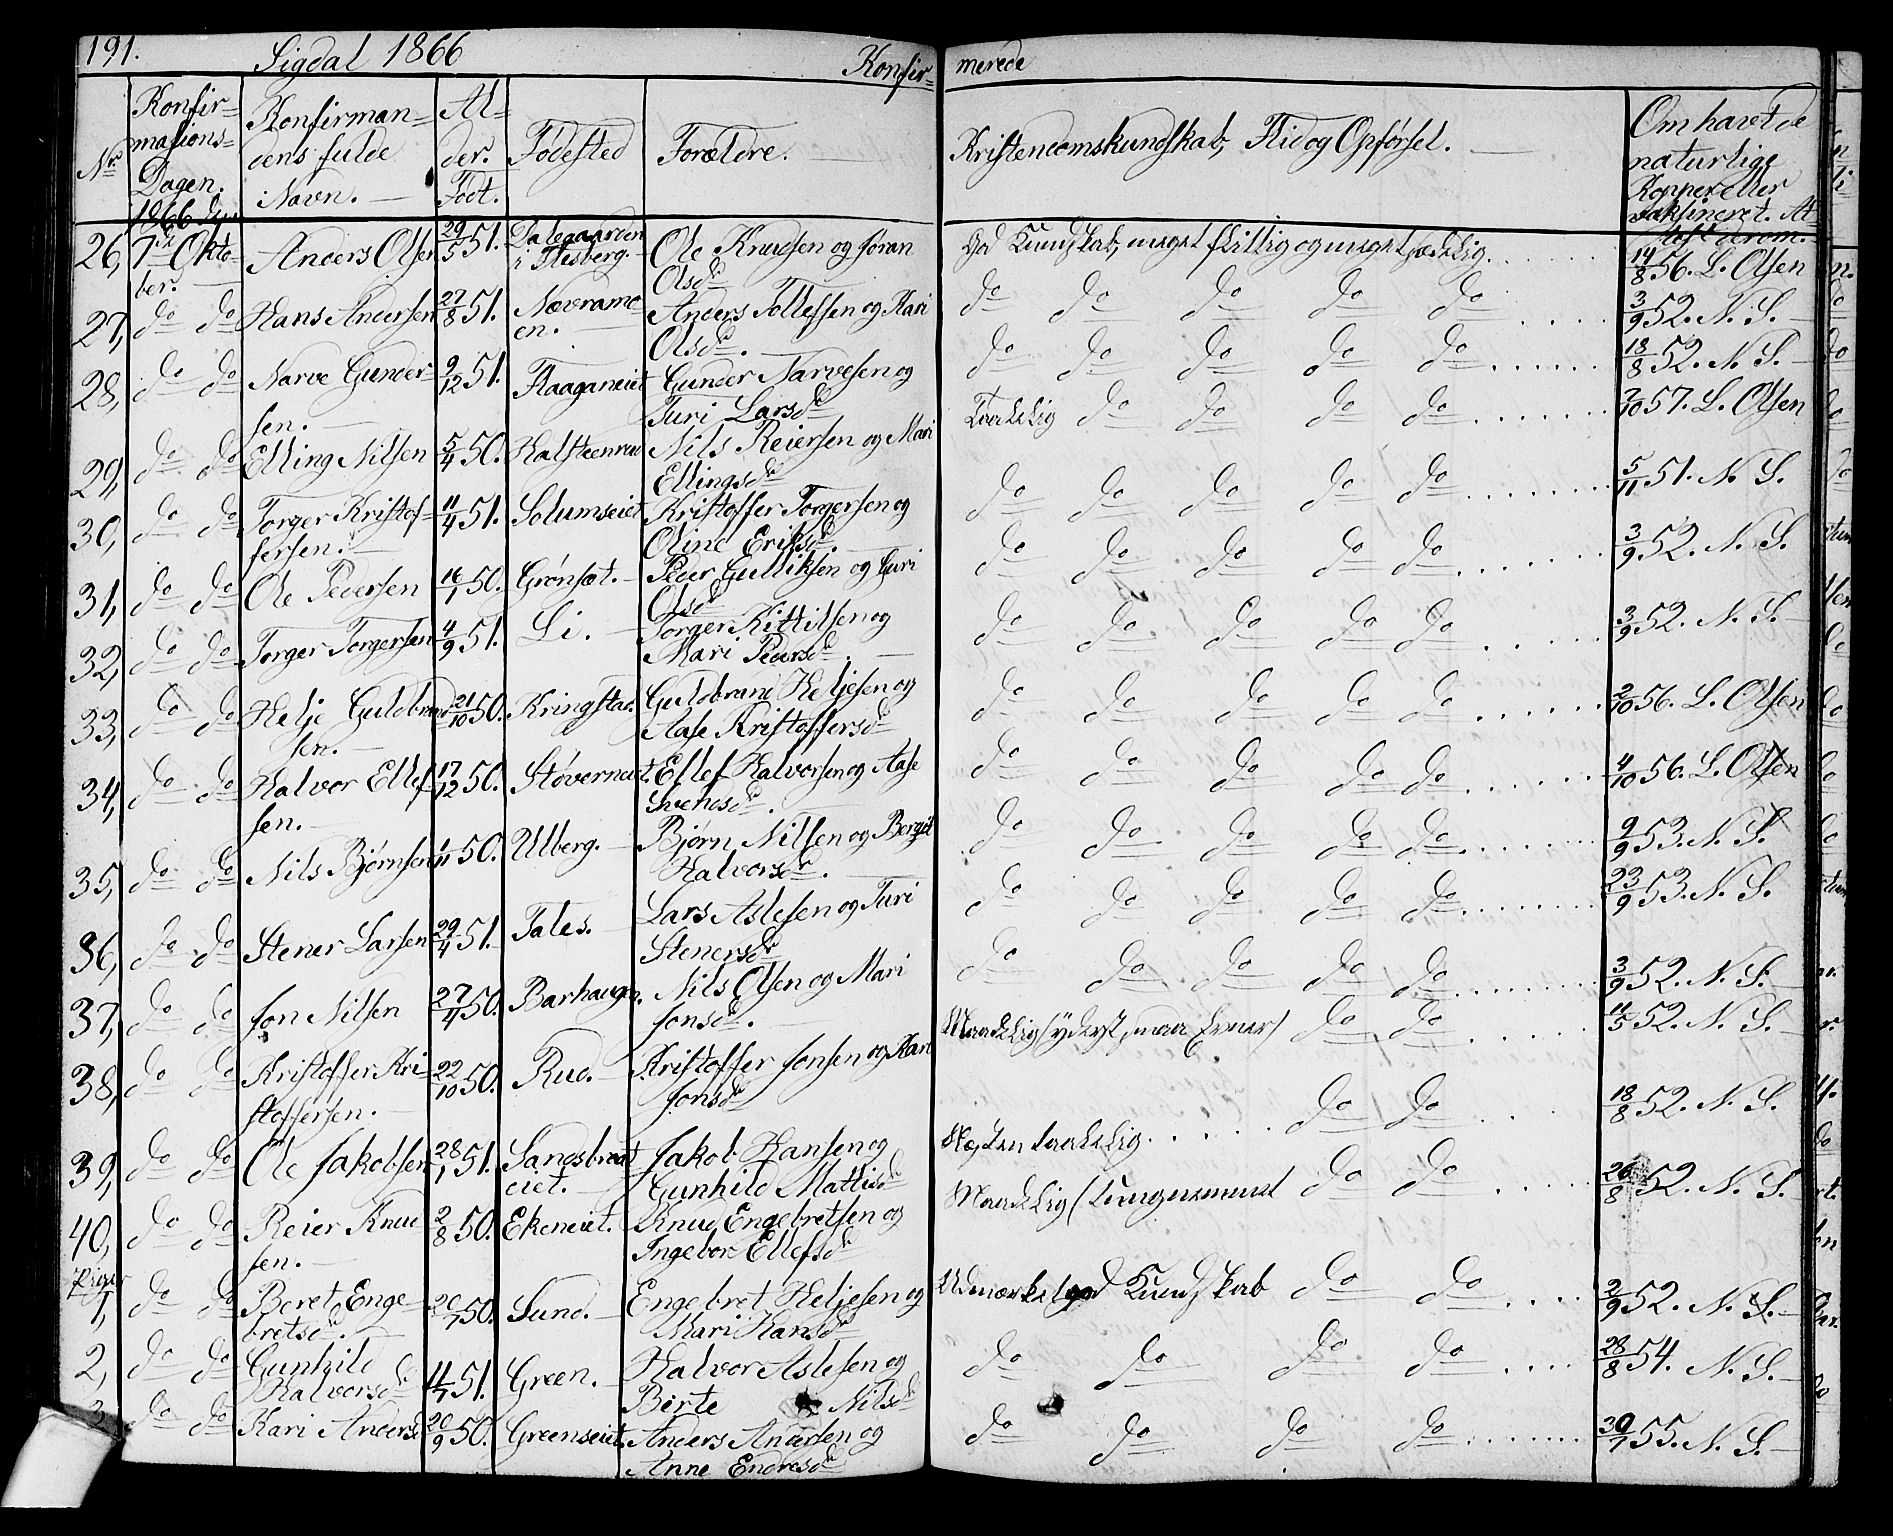 191. Sigdal 1866 Konfir= merede
Nr. Konfir=masions=Dagen. 1866 den Konfirman=dens fulde Navn. Al=der. Født. Fødested Forældre. Kristendomskundskab, Flid og Opførsel. Om havt de naturlige Kopper eller vaksineret. At=test derom.
26, 7de Okto=ber. Anders Olsen 29/5 51. Dalegaarden i Flesberg. Ole Knudsen og Joran Olsdr God Kundskab, meget flittig og meget sædelig. 14/8 56. L. Olsen
27, do do Hans Andersen 27/8 51. Nævramo=en. Anders Tollefsen og Kari Olsdr. do do do do do 3/9 52. N. S.
28, do do Narve Gunder=sen. 9/12 51. Flaaganeiet Gunder Narvesen og Turi Larsdr do do do do do 18/8 52. N. S.
29, do do Elling Nilsen 5/4 50. Halsteenrud Nils Reiersen og Mari Ellingsdr Taalelig do do do do 7/10 57. L. Olsen
30, do do Torger Kristof=fersen. 11/4 51. Solumseiet Kristoffer Torgersen og Oline Eriksdr do do do do do 5/11 51. N. S.
31, do do Ole Pedersen 16/1 50. Grønsæt. Peder Gulliksen og Guri Olsdr do do do do do 3/9 52. N. S.
32, do do Torger Torgersen 4/9 51. Li. Torger Kittilsen og Mari Pedersdr. do do do do do 3/9 52. N. S.
33, do do Helje Guldbrandsen. 21/10 50. Kringstad. Guldbrand Heljesen og Aase Kristoffersdr do do do do do 2/10 56. L. Olsen
34, do do Halvor Ellefsen. 17/12 50. Støverneiet. Ellef Halvorsen og Aase Svendsdr. do do do do do 4/10 56. L. Olsen
35, do do Nils Bjørnsen 1/11 50. Ulberg. Bjørn Nilsen og Bergit Halvorsdr. do do do do do 9/9 53. N. S.
36, do do Stener Larsen 29/4 51. Tales. Lars Aslesen og Turi Stenersdr do do do do do 23/9 53. N. S.
37, do do Jon Nilsen 27/4 50. Barhaugen. Nils Olsen og Mari Jonsdr. do do do do do 3/9 52. N. S.
38, do do Kristoffer Kri=stoffersen. 22/10 50. Rud. Kristoffer Jonsen og Kari Jonsdr Maadelig (yderst, maa do do 11/5 52. N. S.
39, do do Ole Jakobsen 28/1 51. Sandsbraateiet. Jakob Hansen og Gunhild Mattisdr Næsten taalelig. do do 18/8 52. N. S.
40, do do Reier Knudsen. 2/8 50. Ekeneiet. Knud Engebretsen og Ingebor Ellefsdr Maadelig (tungnemmet do do 26/8 52. N. S.
Piger
1, do do Beret Enge=bretsdr. 20/7 50. Lund. Engebret Heljesen og Mari Hansdr Udmærket god Kundskab do do 2/9 52. N. S.
2, do do Gunhild Halvorsdr 11/7 51. Green. Halvor Aslesen og Birte Nilsdr do do do do 28/8 54. N. S.
3, do do Kari Andersd 20/9 50. Greenseiet. Anders Andersen og Anne Endresdr do do do do 30/7 55. N. S.